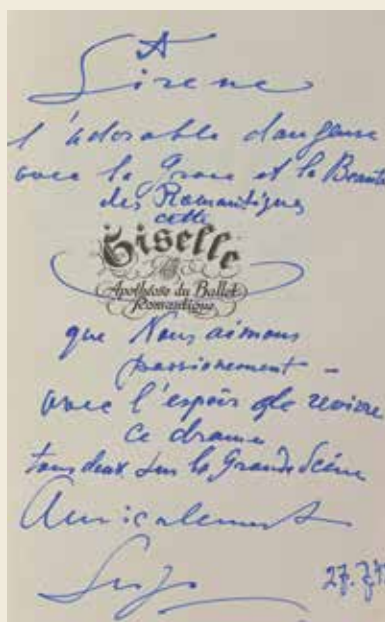 A
Sirene
l'adorable danseuse
avec la Grace et la Beauté
des Romantiques
cette
Giselle
Apothéose du Ballet
Romantique
que Nous aimons
passionement -
avec l'espoir de revivre
ce drame
tous deux sur la Grande Scène
Amicalement